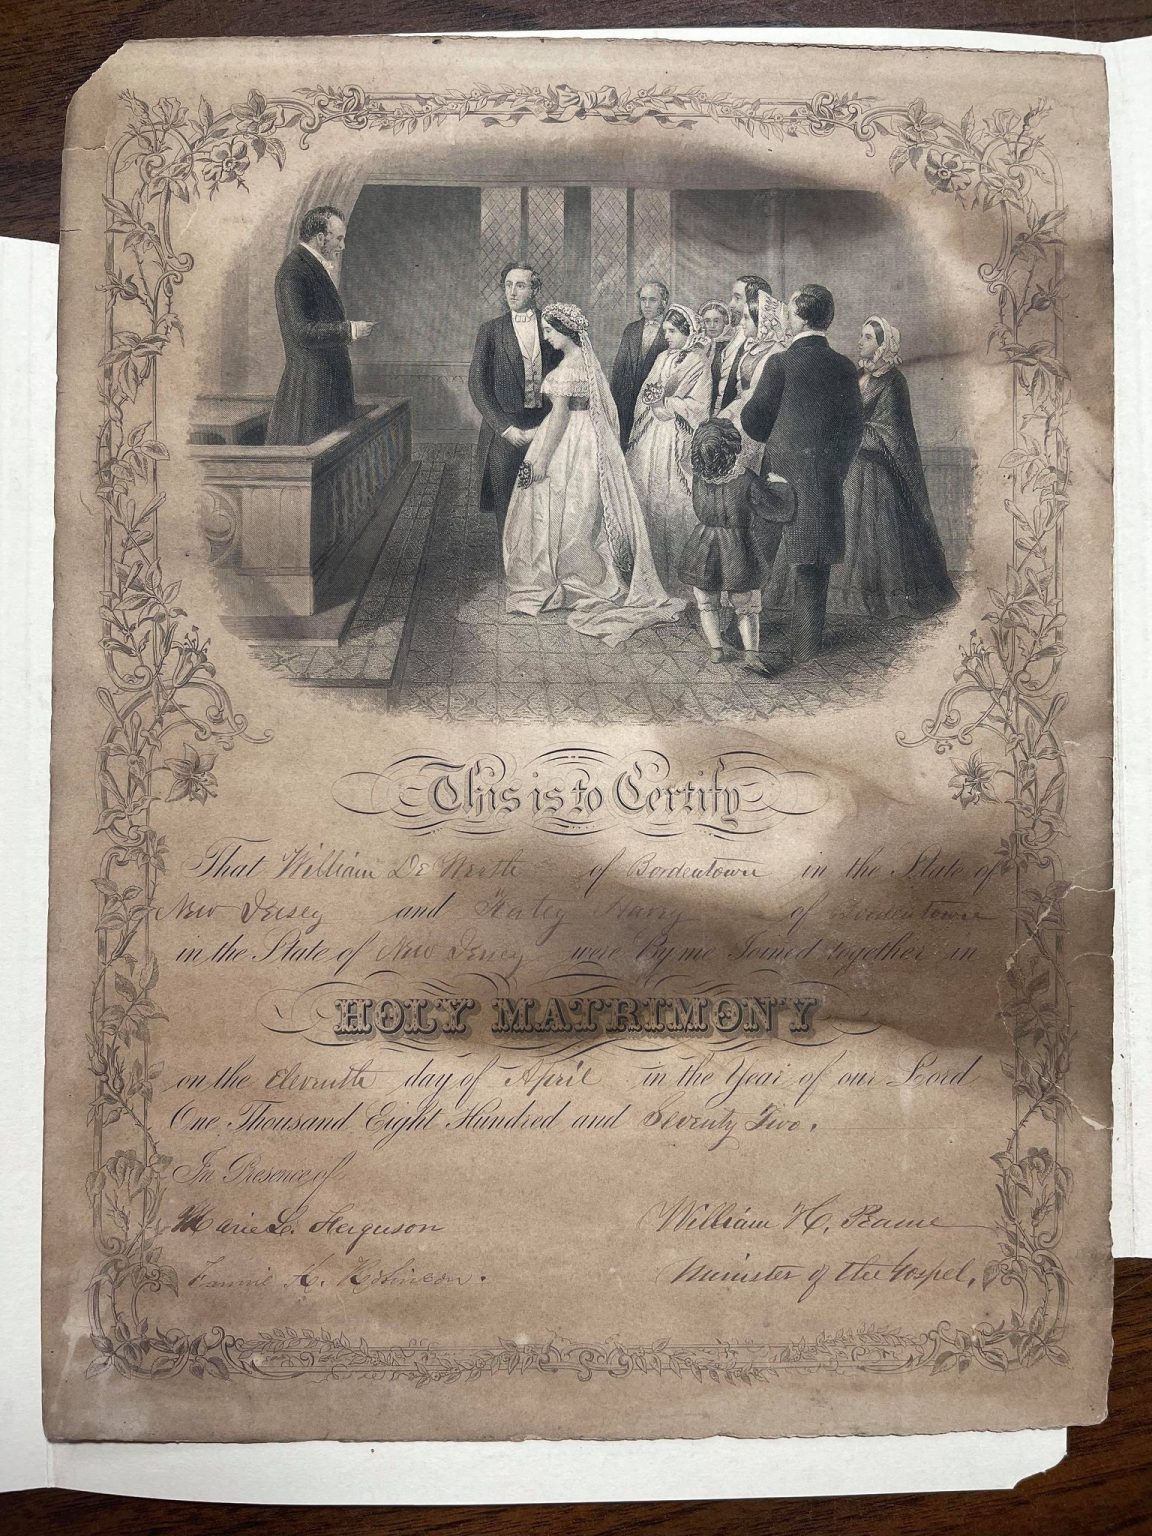 This is to Certify
That William De Werth of Bordentown in the State of
New Jersey and Katey Harry of Bordentown
in the State of New Jersey were By me Joined together in
HOLY MATRIMONY
on the Eleventh day of April in the Year of our Lord
One Thousand Eight Hundred and Seventy Two.
In Presence of
Marie L. Ferguson
William H.
Fannie K. Robinson.
Minister of the Gospel.